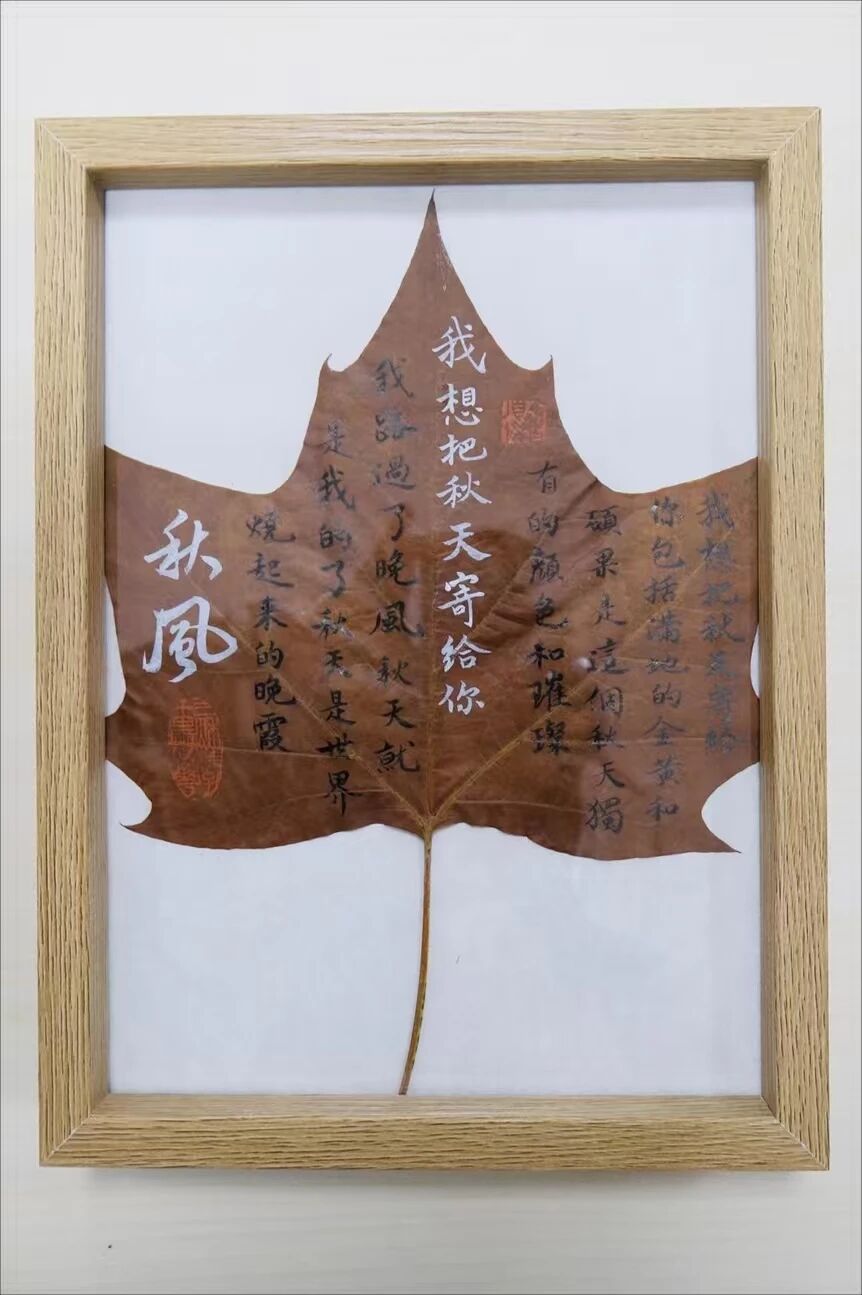 我想把秋天寄給
你包括滿地的金黃和
碩果是這個秋天獨
有的顏色和璀璨
我想把秋天寄给你
我路過了晚風秋天就
是我的了秋天是世界
燒起来的晚霞
秋風